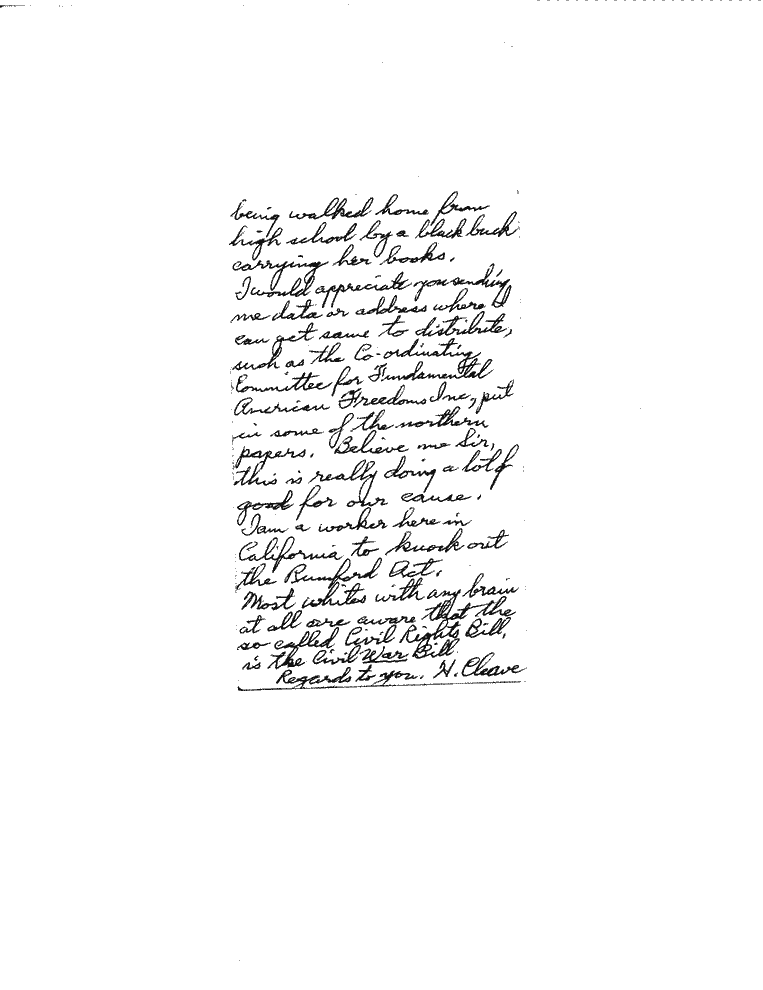 being walked home from
high school by a black buck
carrying her books.
I would appreciate you sending
me data or address where I
can get same to distribute,
such as the Co-ordinating
Committee for Fundamental
American Freedoms Inc, put
in some of the northern
papers. Believe me Sir,
this is really doing a lot of
good for our cause.
I am a worker here in
California to knock out
the Rumford Act.
Most whites with any brain
at all are aware that the
so called Civil Rights Bill,
is the Civil War Bill.
Regards to you. H. Cleave